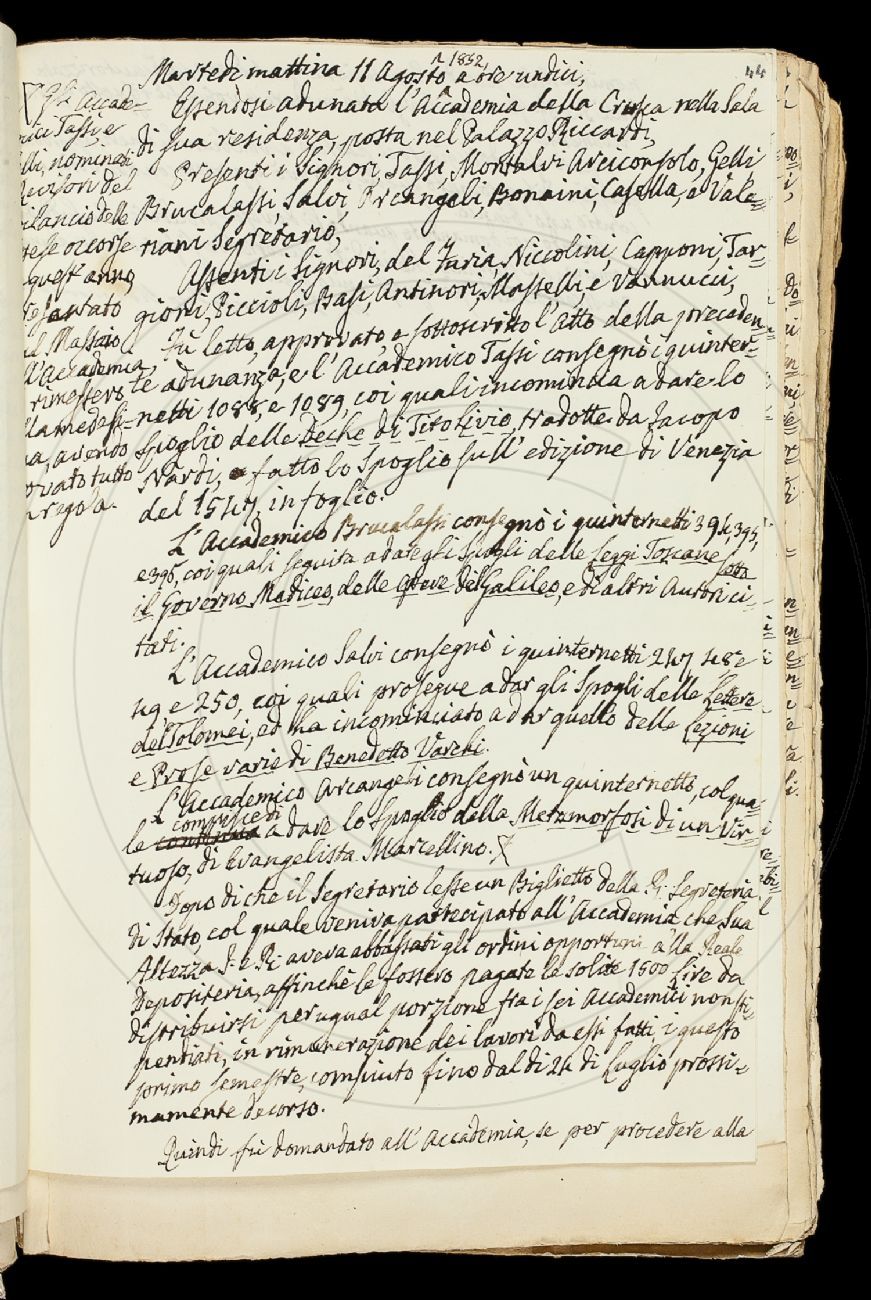 44
Martedì mattina 11 Agosto 1832, a ore undici,
Essendosi adunata l'Accademia della Crusca nella Sala
di sua residenza, posta nel Palazzo Riccardi,
Presenti i Signori, Tassi, Montalvi Arciconsolo, Gelli,
Brucalassi, Salvi, Arcangeli, Bonaini, Casella, e Vale=
riani Segretario,
Assenti i Signori, del Furia, Niccolini, Capponi, Tar=
gioni, Piccioli, Basi, Antinori, Masselli, e Vannucci,
Fù letto, approvato, e sottoscritto l'Atto della preceden=
te adunanza, e l'Accademico Tassi consegnò i quinter=
netti 1088, e 1089, coi quali incomincia a dare lo
Spoglio delle Deche di Tito Livio, tradotte da Jacopo
Nardi, fatto lo Spoglio sull'edizione di Venezia
del 1547, in foglio.
L'Accademico Brucalassi consegnò i quinternetti 394, 395,
e 396, coi quali seguita a dare gli Spogli delle Leggi Toscane sotto
il Governo Mediceo, delle Opere del Galileo, e di altri Autori ci=
tati.
L'Accademico Salvi consegnò i quinternetti 247, 48, e
49 e 250, coi quali prosegue a dar gli Spogli delle Lettere
del Tolomei, ed ha incominciato a dar quello delle Lezioni
e Prose varie di Benedetto Varchi.
L'Accademico Arcangeli consegnò un quinternetto, col qua=
le compisce di a dare lo Spoglio della Metamorfosi di un Vir=
tuoso, di Evangelista Marcellino.
Dopo di che il Segretario lesse un Biglietto della R. Segreteria
di Stato, col quale veniva partecipato all'Accademia che Sua
Altezza I. e R. aveva abbassati gli ordini opportuni alla Reale
Depositeria, affinchè le fossero pagate le solite 1500 Lire da
distribuirsi per ugual porzione fra i sei Accademici non sti=
pendiati, in rimunerazione dei lavori da essi fatti, i questo
primo semestre, compiuto fino dal dì 24 di Luglio prossi=
mamente decorso.
Quindi fù domandato all'Accademia, se per procedere alla
Accade=
Tassi, e
nominati
Revisori del
Bilancio delle
spese occorse
quest'anno
presentato
Massaio
Accademia,
rimessero
la medesi=
ma, avendo
trovato tutto
in regola.